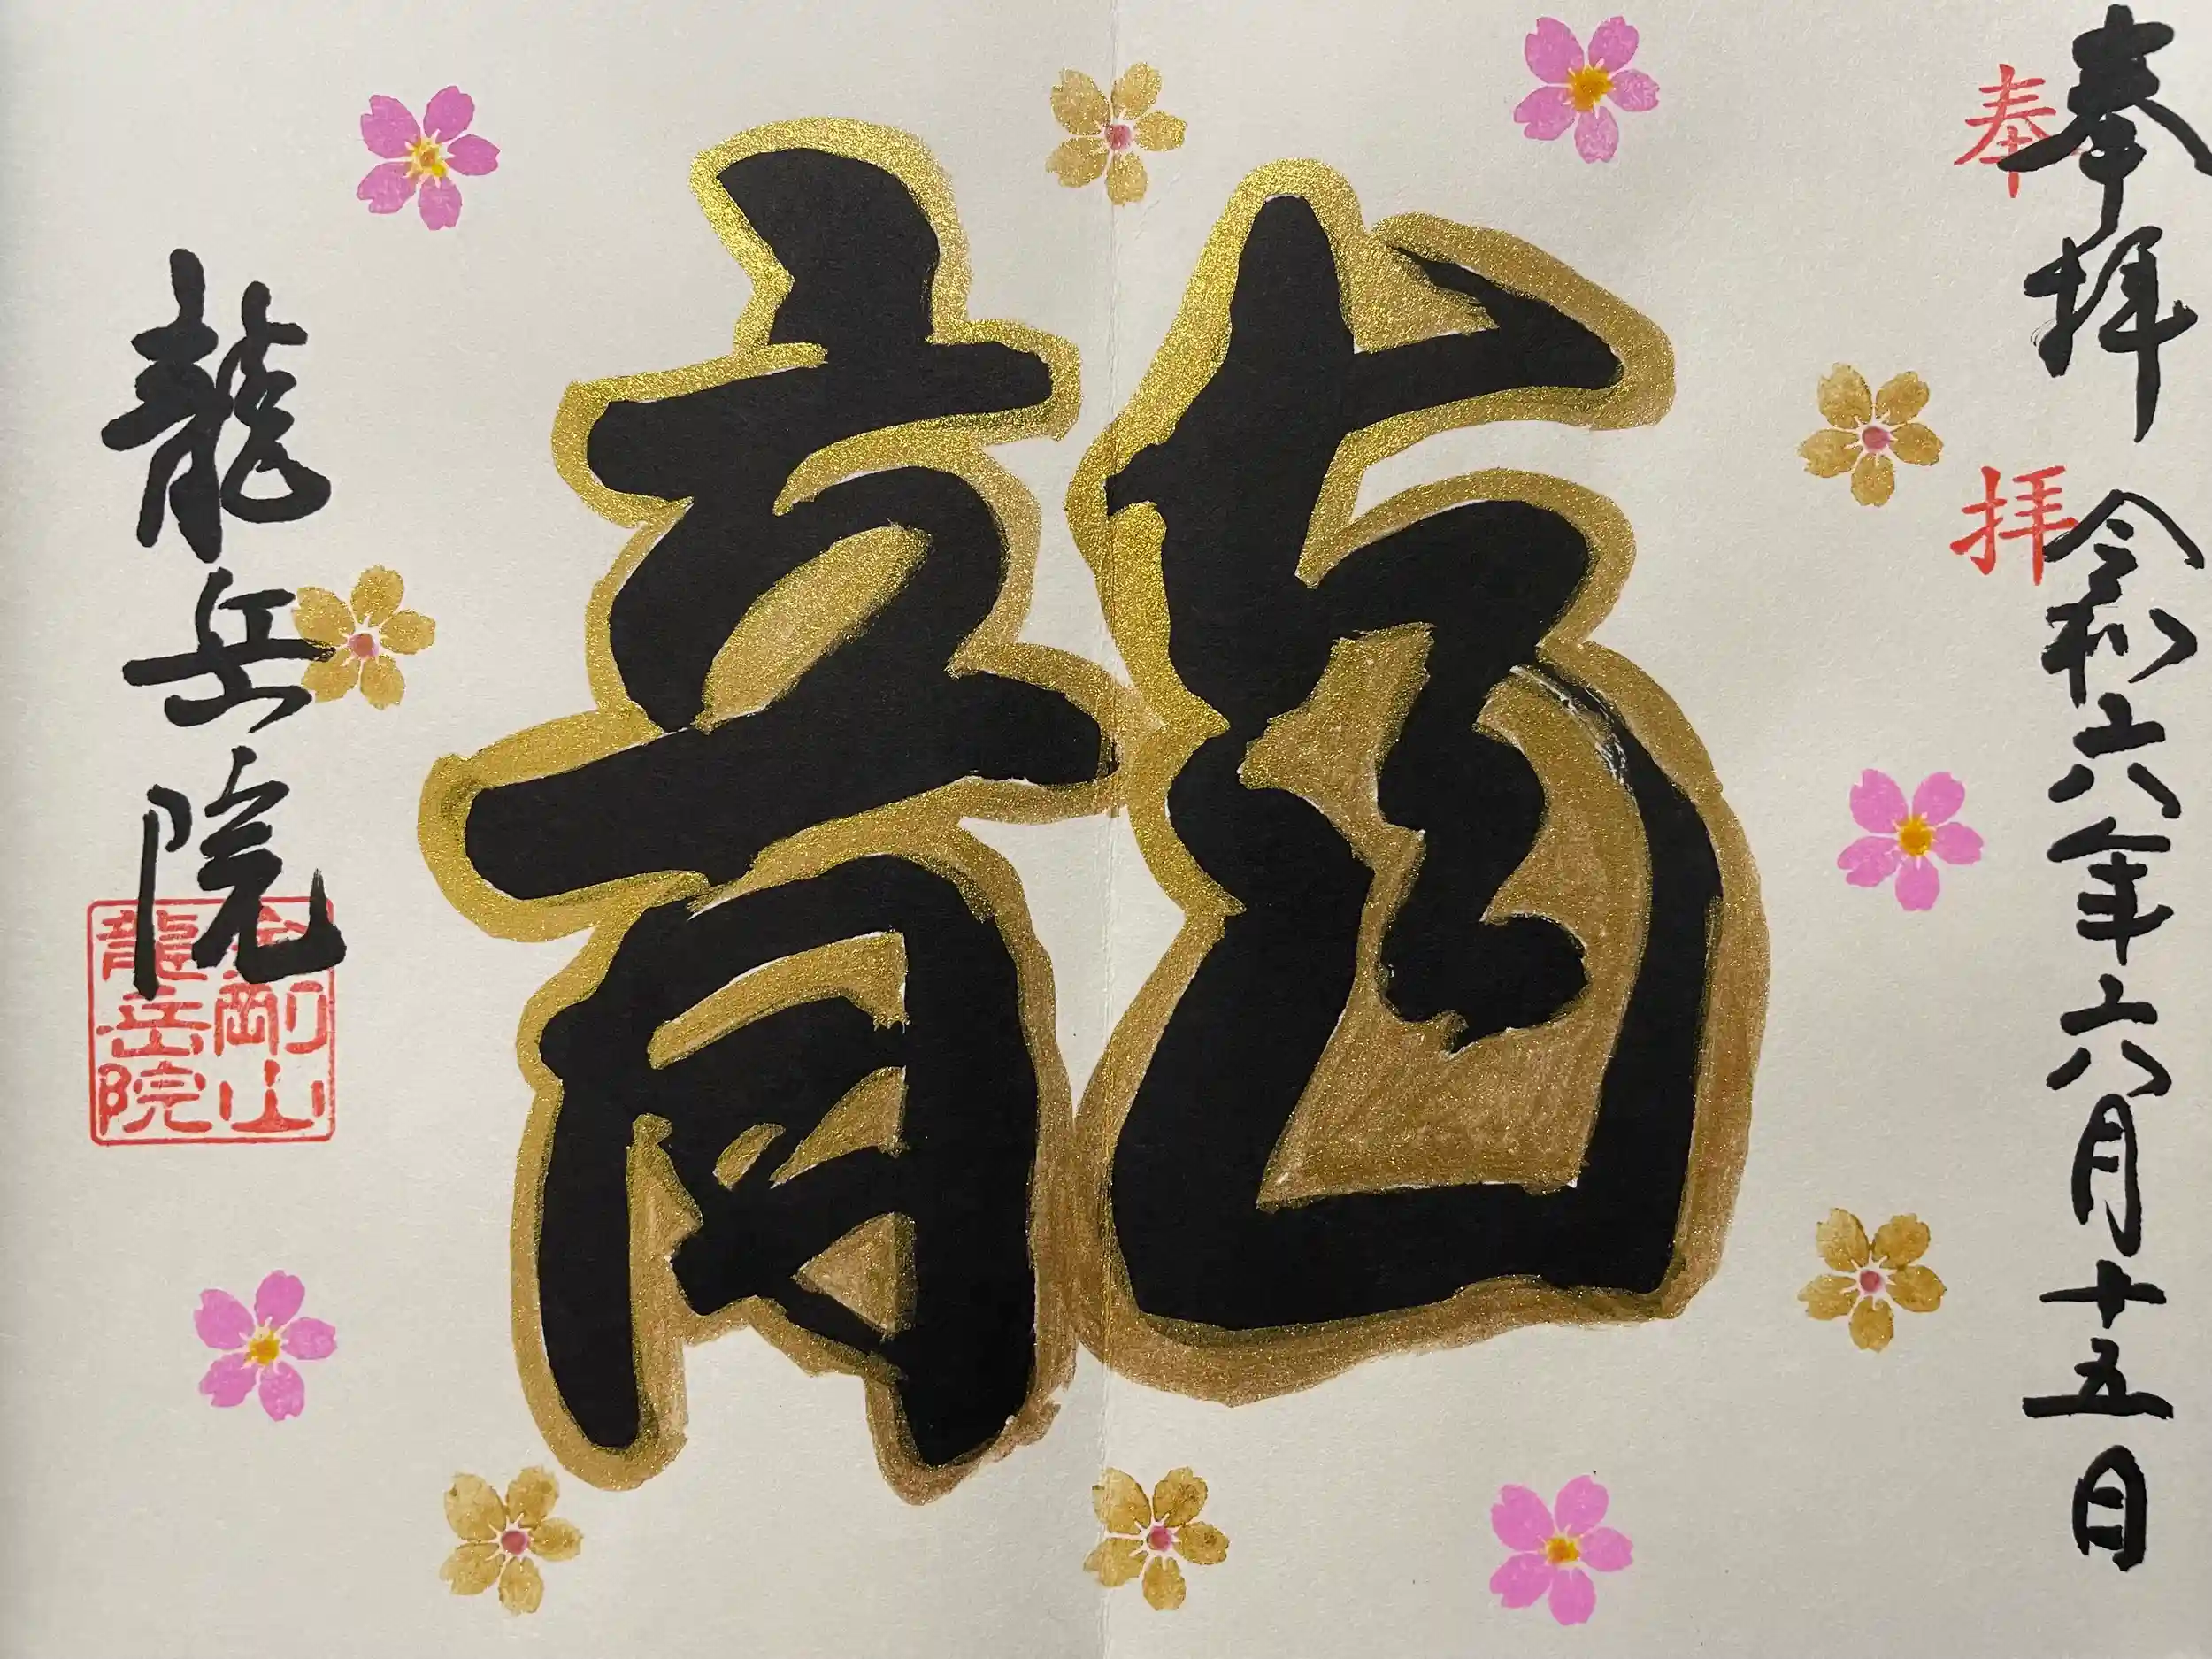 奉拝
令和六年六月十五日
奉
拝
龍
龍岳院
金剛山
龍岳院